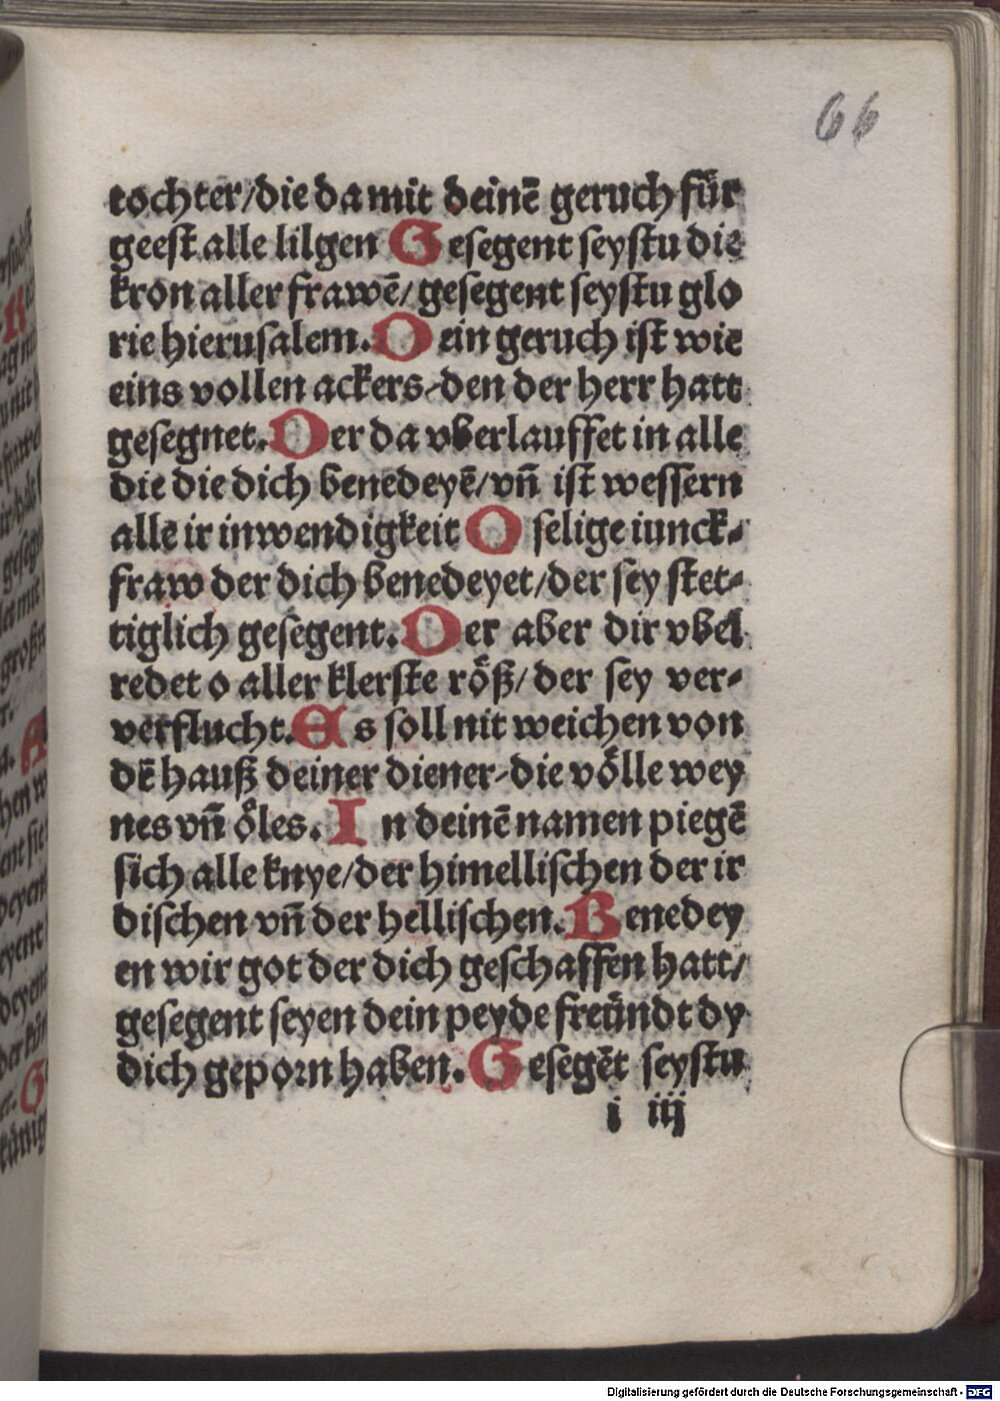 66
tochter/die da mit deinē geruch für
geest alle lilgen Gesegent seystu die
kron aller frawē/gesegent seystu glo
rie hierusalem. Dein geruch ist wie
eins vollen ackers-den der herr hatt
gesegnet. Der da vberlauffet in alle
die die dich benedeyē/vñ ist wessern
alle ir inwendigkeit O selige iunck-
fraw der dich benedeyet/der sey stet-
tiglich gesegent. Der aber dir vbel
redet o aller klerste röß/der sey ver-
verflucht. Es soll nit weichen von
dē hauß deiner diener-die völle wey
nes vñ öles. In deinē namen piegē
sich alle knye/der himellischen der ir
dischen vñ der hellischen. Benedey
en wir got der dich geschaffen hatt/
gesegent seyen dein peyde freündt dy
dich geporn haben. Gesegēt seystu
i iij
Digitalisierung gefördert durch die Deutsche Forschungsgemeinschaft - DFG